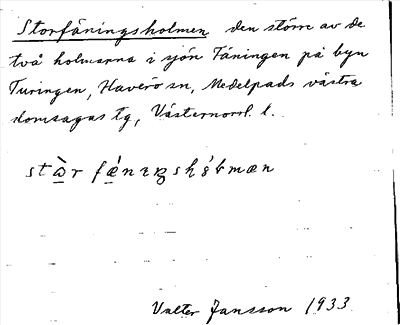 Storfåningsholmen den större av de
två holmarna i sjön Fåningen på byn
Turingen, Haverö sn, Medelpads västra
domsagas tg, Västernorrl. l.
Valter Jansson 1933